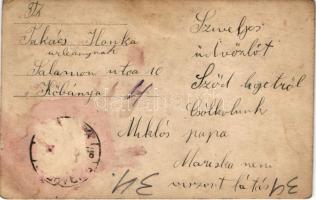 Takács Ilonka
urleánynak
Salamon utca 10
Kőbánya
Szivélyes
üdvözlöt
Sződ ligetről
Csólkolunk
Miklós papa
Mariska neni
viszont látás
34.
34